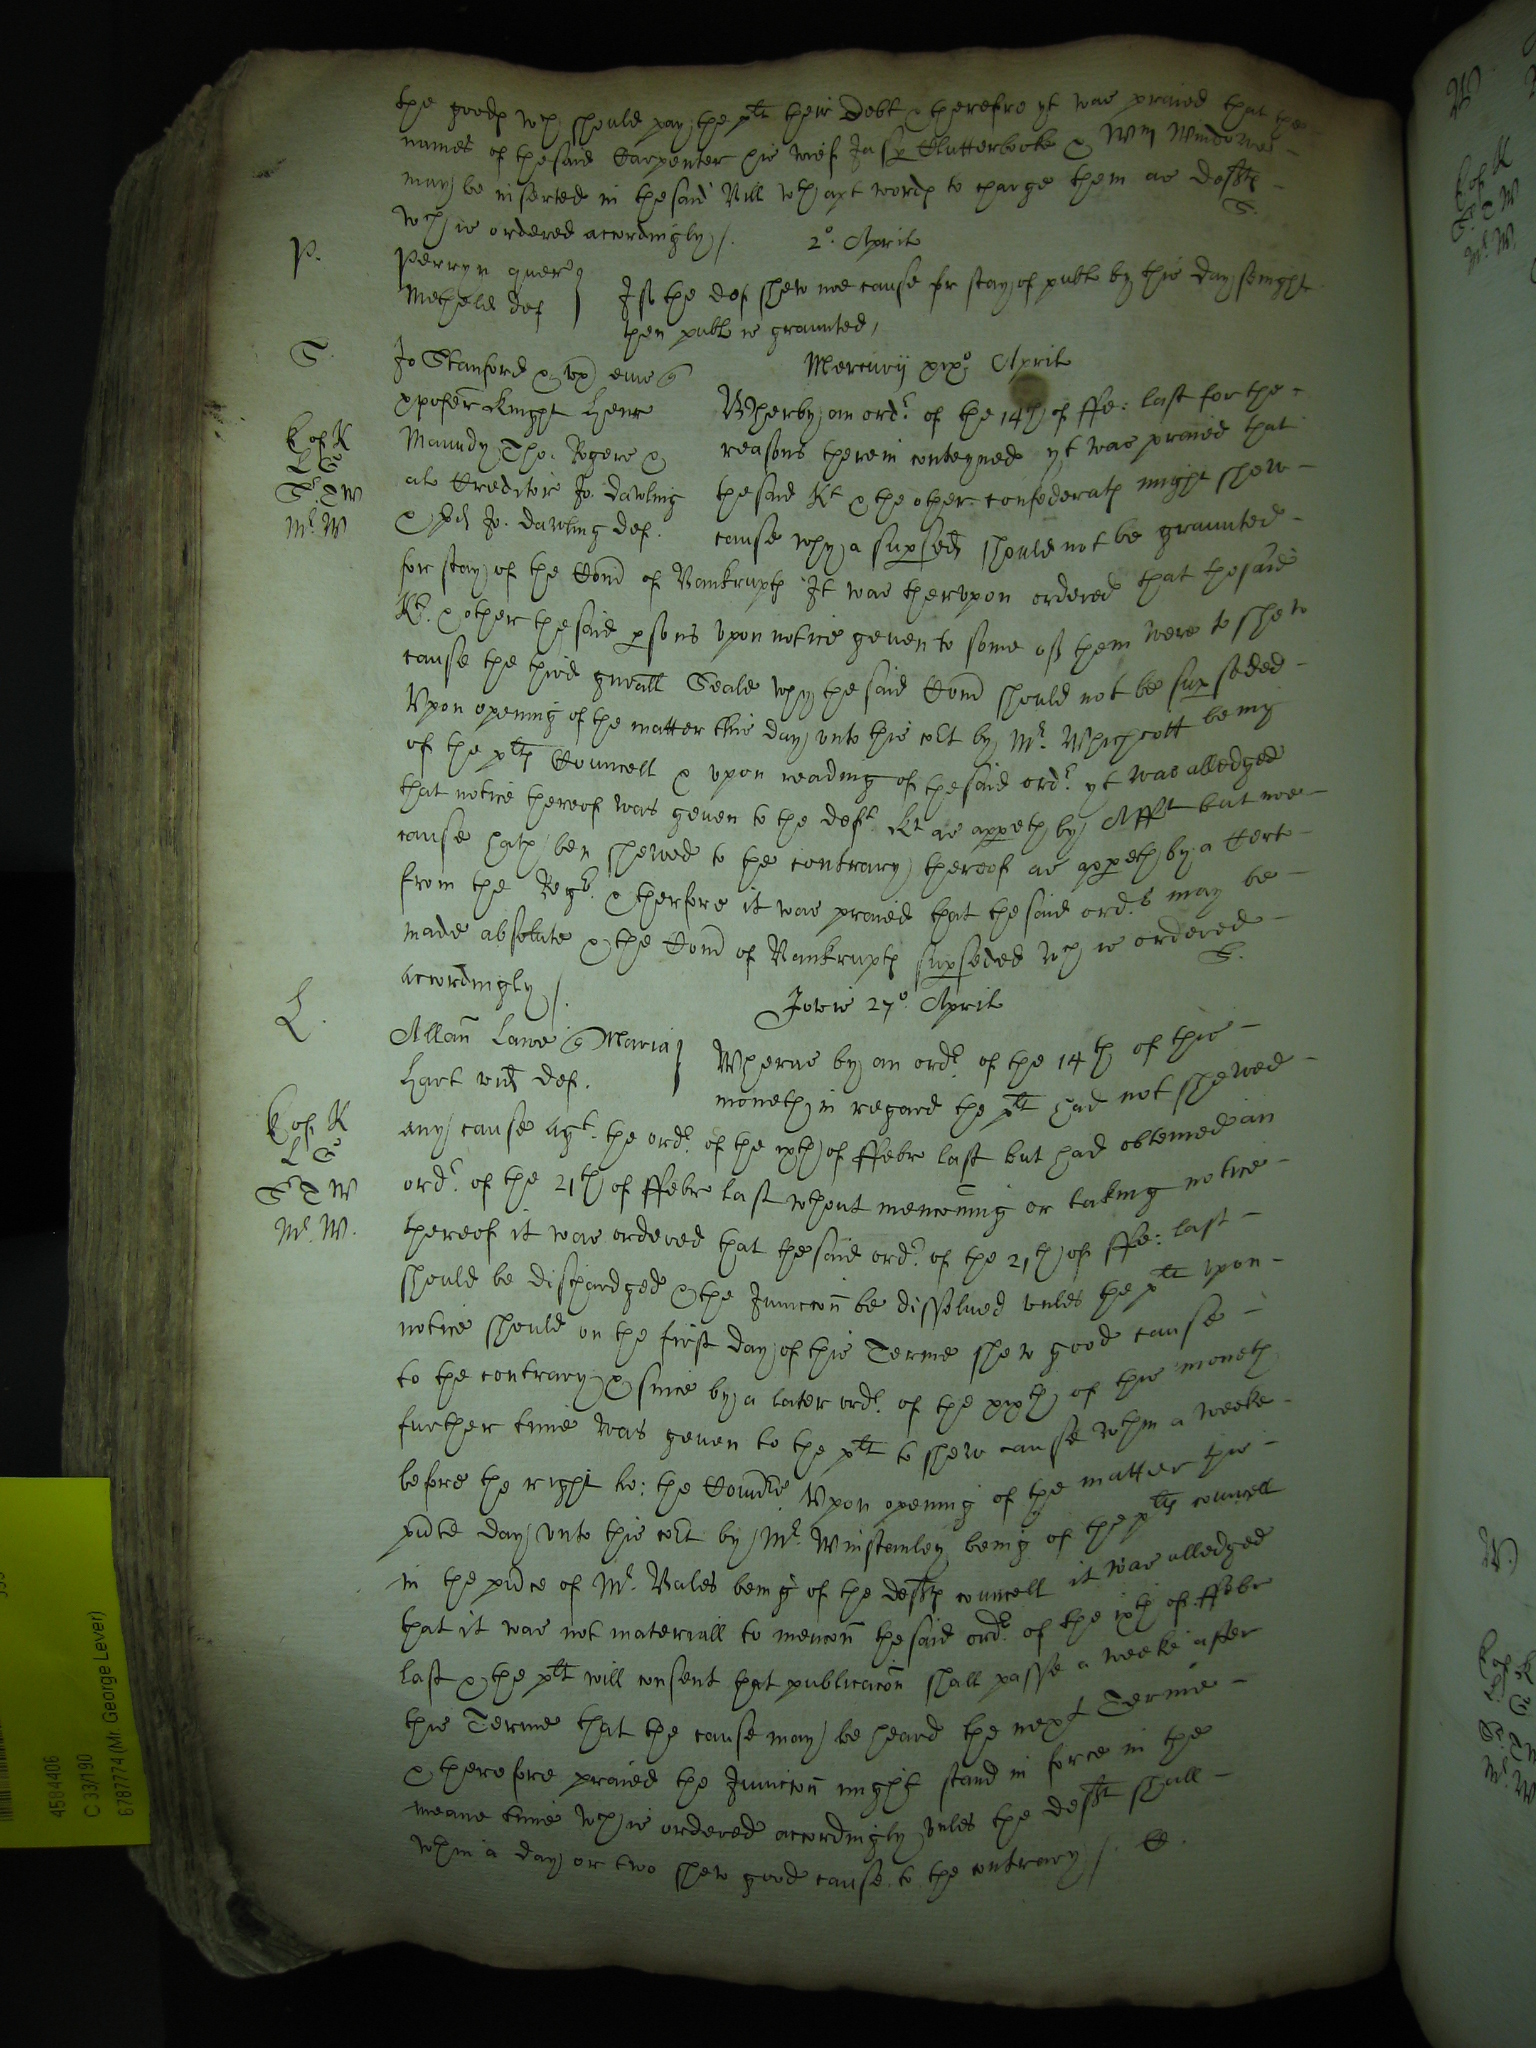 the goods wch should pay the plt their Debt & therefore yt was praied that the
names of the said Carpenter his wief Jasp Clutterbooke & Wm Windowes
may be inserted in the said Bill wth apt words to charge them as defts
wch is ordered accordingly /.
S.
2° Aprilis
P.
Perryn quer
Metheld def
If the def shew noe cause for stay of publ by this day senight
then publ is graunted /
Mercurij xix° Aprilis
S.
Jo Stanford & ux eius &
xpofer Knight Henr
Maundy Tho. Rogers &
al Creditors Jo. Dawling
& Jo. Dawling def.
K of K
L S
S T W
Mr. W
Wherby an ordr. of the 14th of ffe: last for the
reasons therein conteyned yt was praied that
the said Kt & the other confederats might shew
cause why a supsed should not be graunted
for stay of the Com of Bankrupts It was therupon ordered that the said
Kt. & other the said psons upon notice geven to some of them were to shew
cause the third gnall Seale why the said Com should not be supseded
Upon opening of the matter this day unto this Cot by Mr. Whichcott being
of the plts Councell & upon reading of the said ordr. yt was alledged
that notice thereof was geven to the deft. Kt as appeth by Afft but noe
cause hath ben shewed to the contrary thereof as appeth by a Cert
from the Regr. & therfore it was praied that the said ordr. may be
made absolute & the Com of Bankrupts supseded wch is ordered
accordingly /.
S.
Jovis 27° Aprilis
L.
Allan Lawe & Maria
Hart vid def.
K of K
L S
S T W
Mr. W.
Wheras by an ordr. of the 14th of this
moneth in regard the plt had not shewed
any cause agt. the ordr. of the ixth of ffebr last but had obteined an
ordr. of the 21th of ffebr last whout menconing or taking notice
thereof it was ordered that the said ordr. of the 21th of ffe: last
should be dischardged & the Iniunccon be dissolued unles the plt upon
notice should on the first day of this Terme shew good cause
to the contrary & since by a later ordr. of the xixth of this moneth
further time was geven to the plt to shew cause wthin a weeke
before the right ho: the Comrs. Upon opening of the matter this
pnte day unto this Cot by Mr. Winstanley being of the plts councell
in the pnce of Mr. Bales being of the defts councell it was alledged
that it was not materiall to mencon the said ordr. of the ixth of ffebr
last & the plt will consent that publicacon shall passe a weeke after
this Terme that the cause may be heard the next Terme
& therefore praied the Iniunccon might stand in force in the
meane time wch is ordered accordingly unles the deft shall
whin a day or two shew good cause to the contrary /.
4584406
C 33/190
6787774 (Mr George Lever)